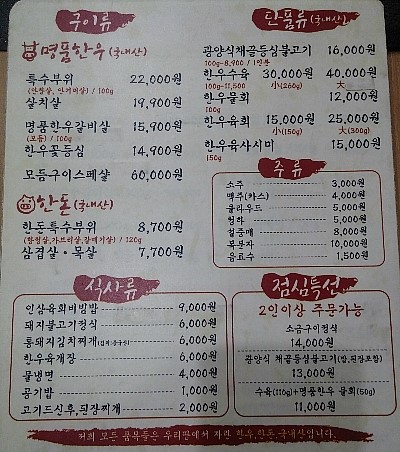 구이류
명품한우(국내산)
특수부위 22,000원
(안창살, 안거미살) / 100g
살치살 19,900원
명품한우갈비살 15,900원
(모듬) / 100g
한우꽃등심 14,900원
모듬구이스페샬 60,000원
한돈(국내산)
한돈특수부위 8,700원
(항정살,가브리살,갈매기살) / 120g
삼겹살·목살 7,700원
단품류(국내산)
광양식채끝등심불고기 16,000원
100g-8,900 / 1인분
한우수육 30,000원 40,000원
100g-11,500 小(260g) 大
한우물회 12,000원
한우육회 15,000원 25,000원
小(150g) 大(300g)
한우육사시미 15,000원
150g
주류
소주 3,000원
맥주(카스) 4,000원
클라우드 5,000원
청하 5,000원
설중매 8,000원
복분자 10,000원
음료수 1,500원
식사류
인삼육회비빔밥 9,000원
돼지불고기정식 6,000원
통돼지김치찌개 6,000원
한우육개장 6,000원
물냉면 4,000원
공기밥 1,000원
고기드신후,된장찌개 2,000원
점심특선
2인이상 주문가능
소금구이정식
14,000원
광양식 채끝등심불고기(밥,된장포함)
13,000원
수육(110g)+명품한우 물회(50g)
11,000원
저희 모든 품목들은 우리땅에서 자란 한우,한돈,국내산입니다.